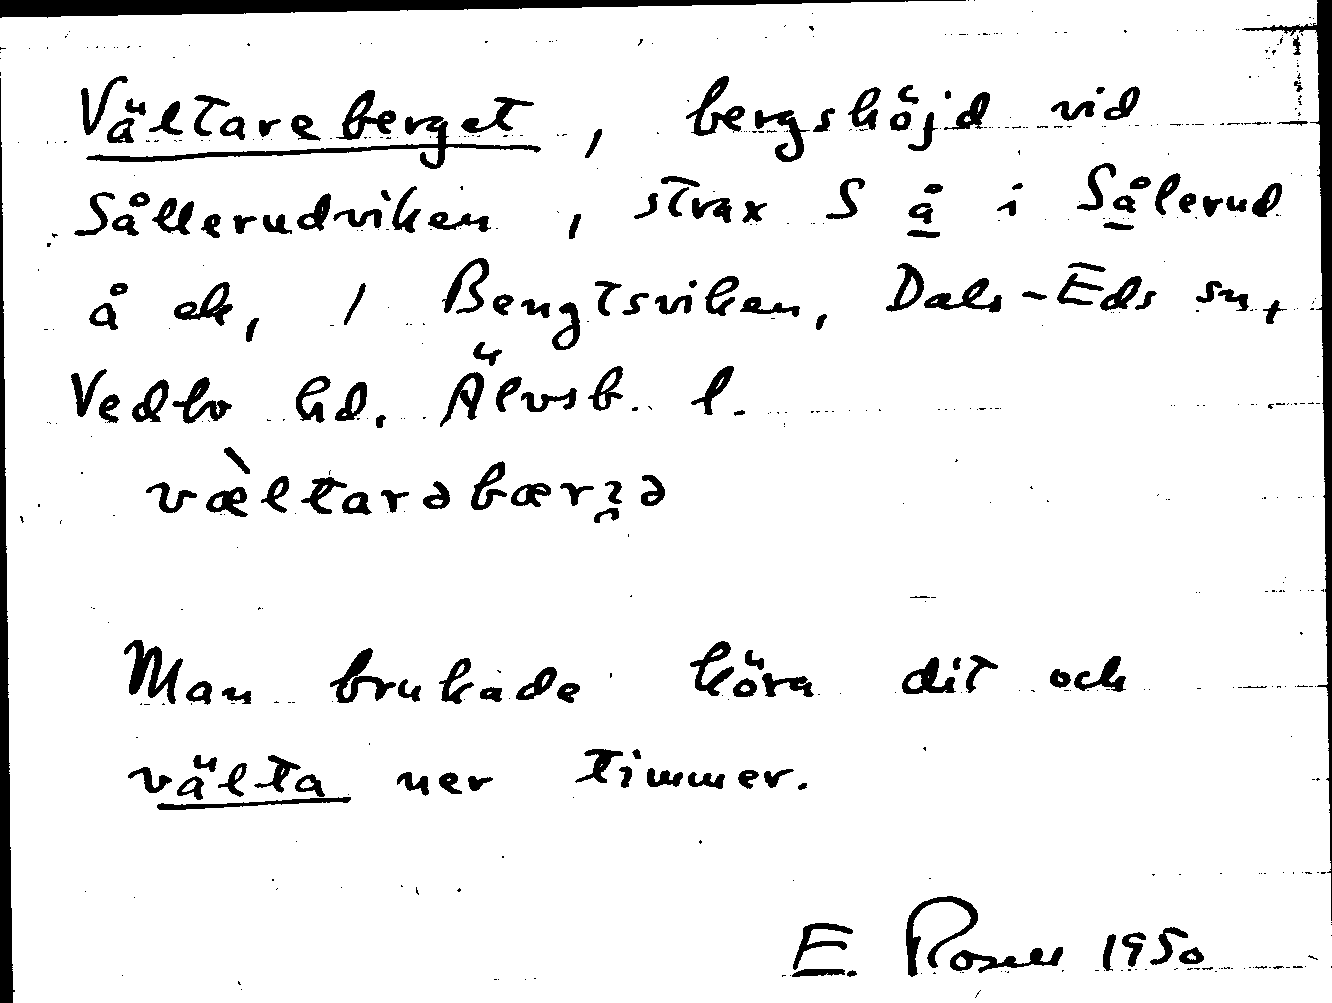 Vältareberget, bergshöjd vid
Sållerudviken, strax S å i Sålerud
å ek, / Bengtsviken, Dals-Eds sn,
Vedbo hd. Älvsb. l.
væ̀ltarəbærʒə
Man brukade köra dit och
välta ner timmer.
E. Rosell 1950